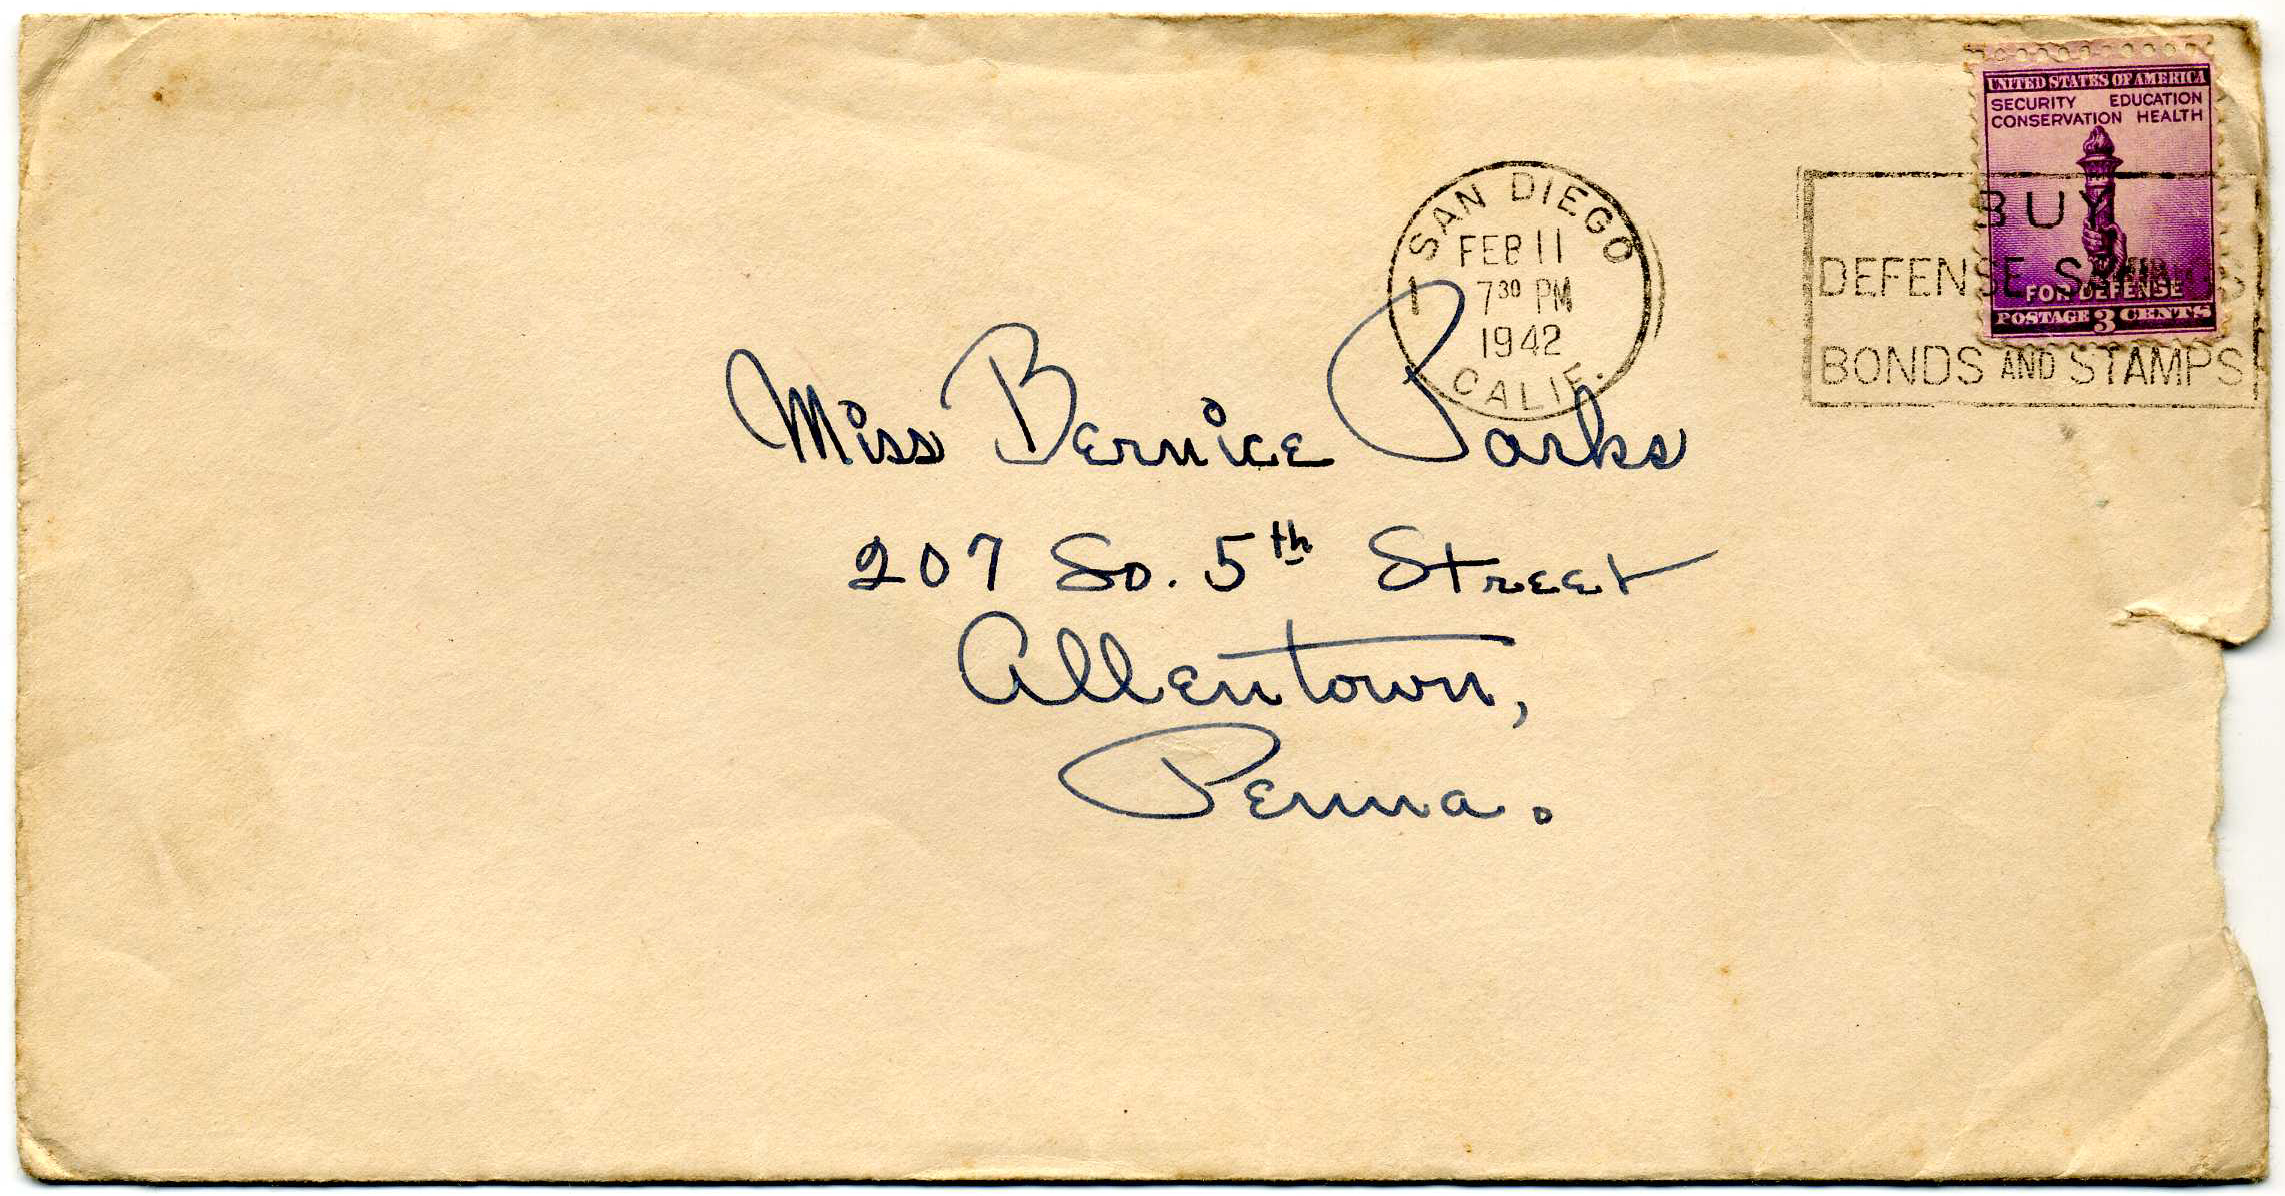 UNITED STATES OF AMERICA
SECURITY EDUCATION
CONSERVATION HEALTH
FOR DEFENSE
POSTAGE 3 CENTS
SAN DIEGO
FEB 11
7 30 PM
1942
CALIF.
1
BUY
DEFENSE SAVINGS
BONDS AND STAMPS
Miss Bernice Parks
207 So. 5th Street
Allentown,
Penna.